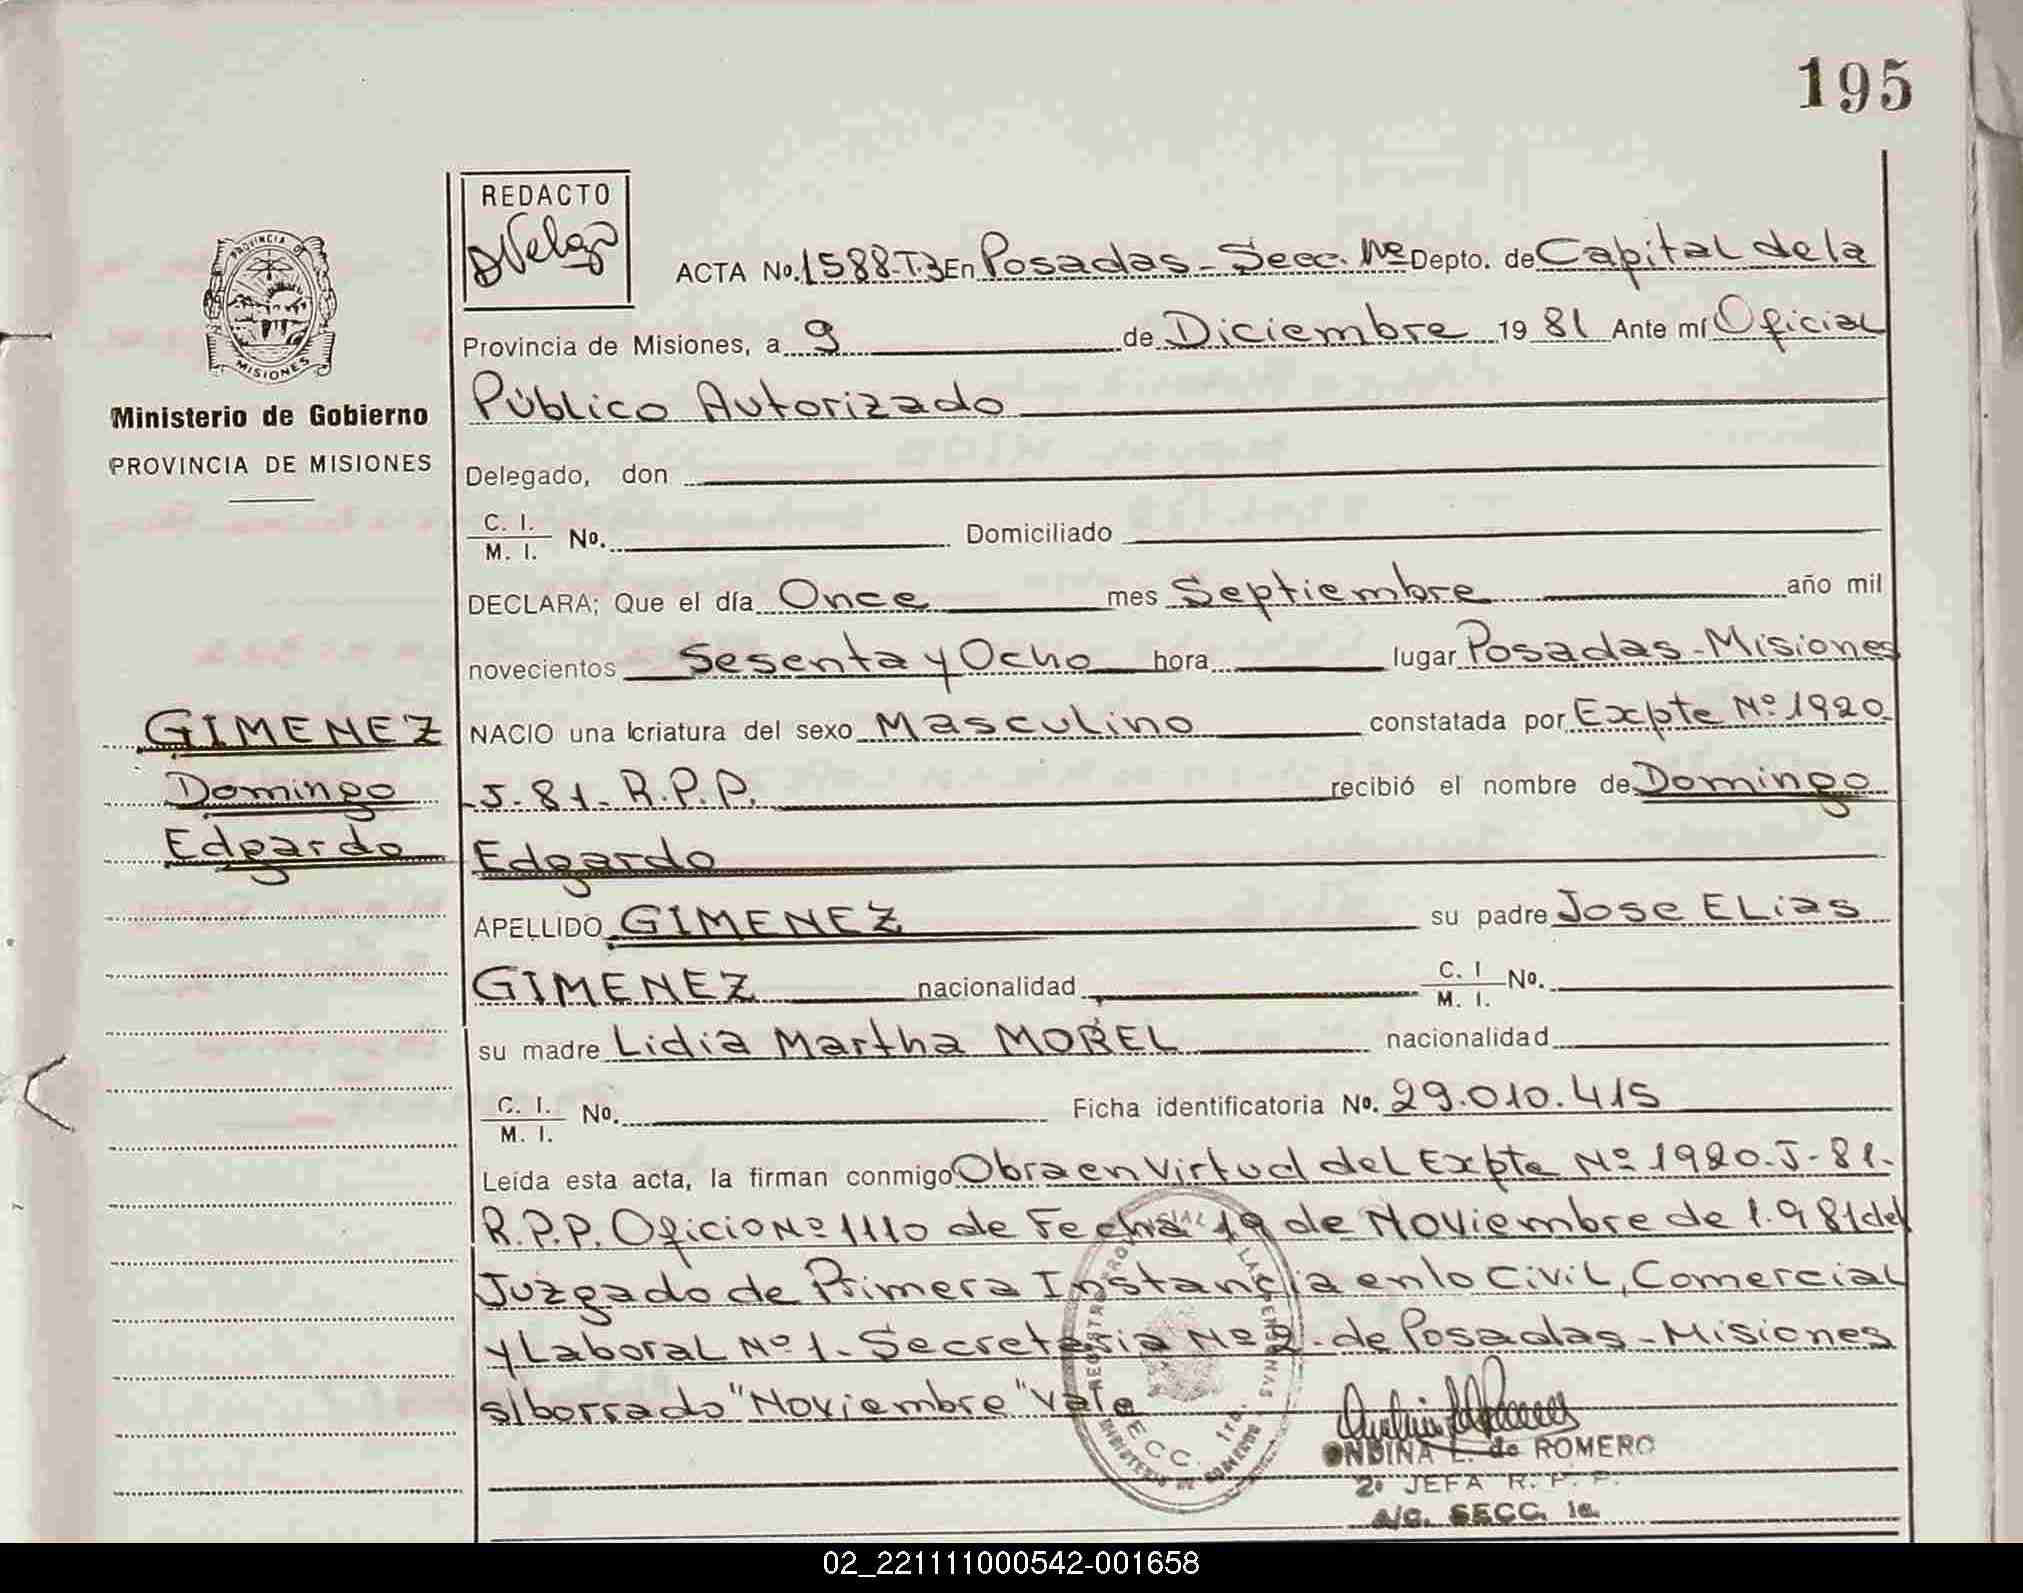 195
REDACTO
ACTA No. 1588-T.3 En Posadas - Secc. 1ra Depto. de Capital de la
Provincia de Misiones, a 9 de Diciembre 1981 Ante mí Oficial
Público Autorizado
PROVINCIA DE
MISIONES
Ministerio de Gobierno
PROVINCIA DE MISIONES
Delegado, don
C. I.
M. I. No. Domiciliado
DECLARA; Que el día Once mes Septiembre año mil
novecientos Sesenta y Ocho hora lugar Posadas - Misiones
GIMENEZ
Domingo
Edgardo
NACIO una criatura del sexo Masculino constatada por Expte Nº 1920
J-81- R.P.P. recibió el nombre de Domingo
Edgardo
APELLIDO GIMENEZ su padre Jose Elias
GIMENEZ nacionalidad C. I M. I. No.
su madre Lidia Martha MOREL nacionalidad
C. I.
M. I. No. Ficha identificatoria No. 29.010.415
Leída esta acta, la firman conmigo Obra en Virtud del Expte Nº 1920-J-81-
R.P.P. Oficio Nº 1110 de Fecha 19 de Noviembre de 1.981 del
Juzgado de Primera Instancia en lo Civil, Comercial
y Laboral Nº 1 - Secretaria Nº 2 - de Posadas - Misiones
s/borrado "Noviembre" Vale
ONDINA L. de ROMERO
2ª JEFA R. P. P.
A/C. SECC. 1a.
02_221111000542-001658